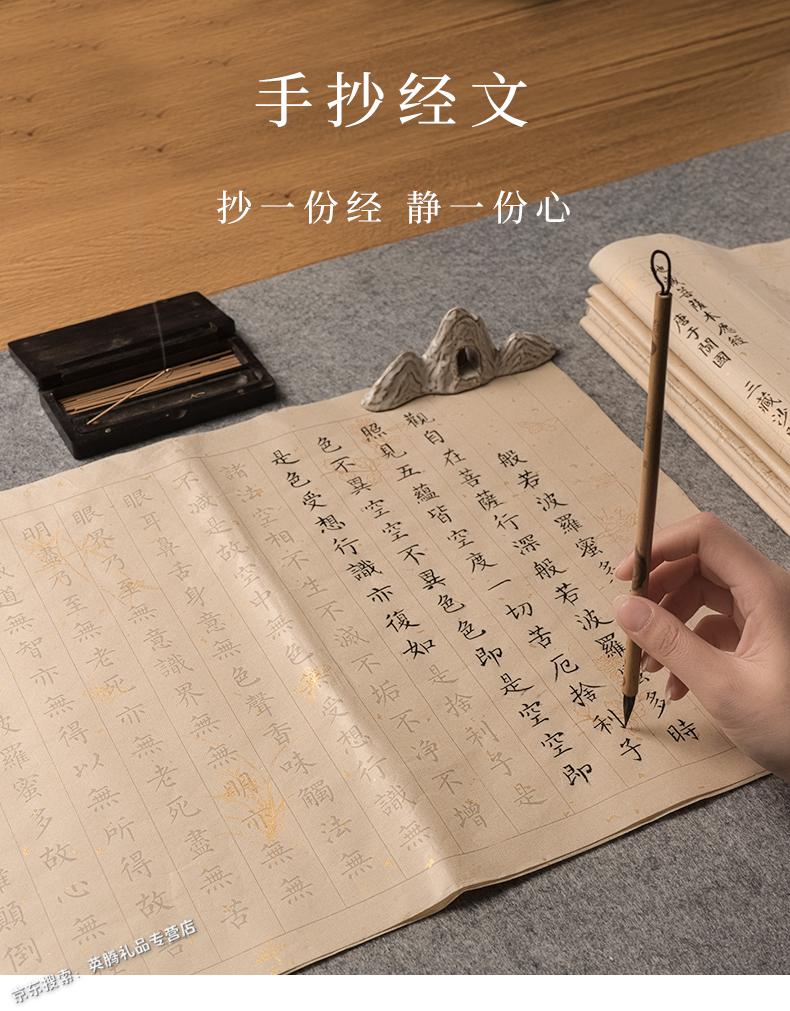 手抄经文
抄一份经 静一份心
般若波羅蜜多
觀自在菩薩行深般若波羅蜜多時
照見五蘊皆空度一切苦厄捨利子
色不異空空不異色色即是空空即
是色受想行識亦復如是捨利子是
諸法空相不生不滅不垢不净不增
不减是故空中無色無受想行識無
眼耳鼻舌身意無色聲香味觸法無
眼界乃至無意識界無無明亦無
明盡乃至無老死亦無老死盡無苦
道無智亦無得以無所得故
波羅蜜多故心無
顛倒
菩薩本願經
唐于闐國
三藏沙
京东搜索：英腾礼品专营店